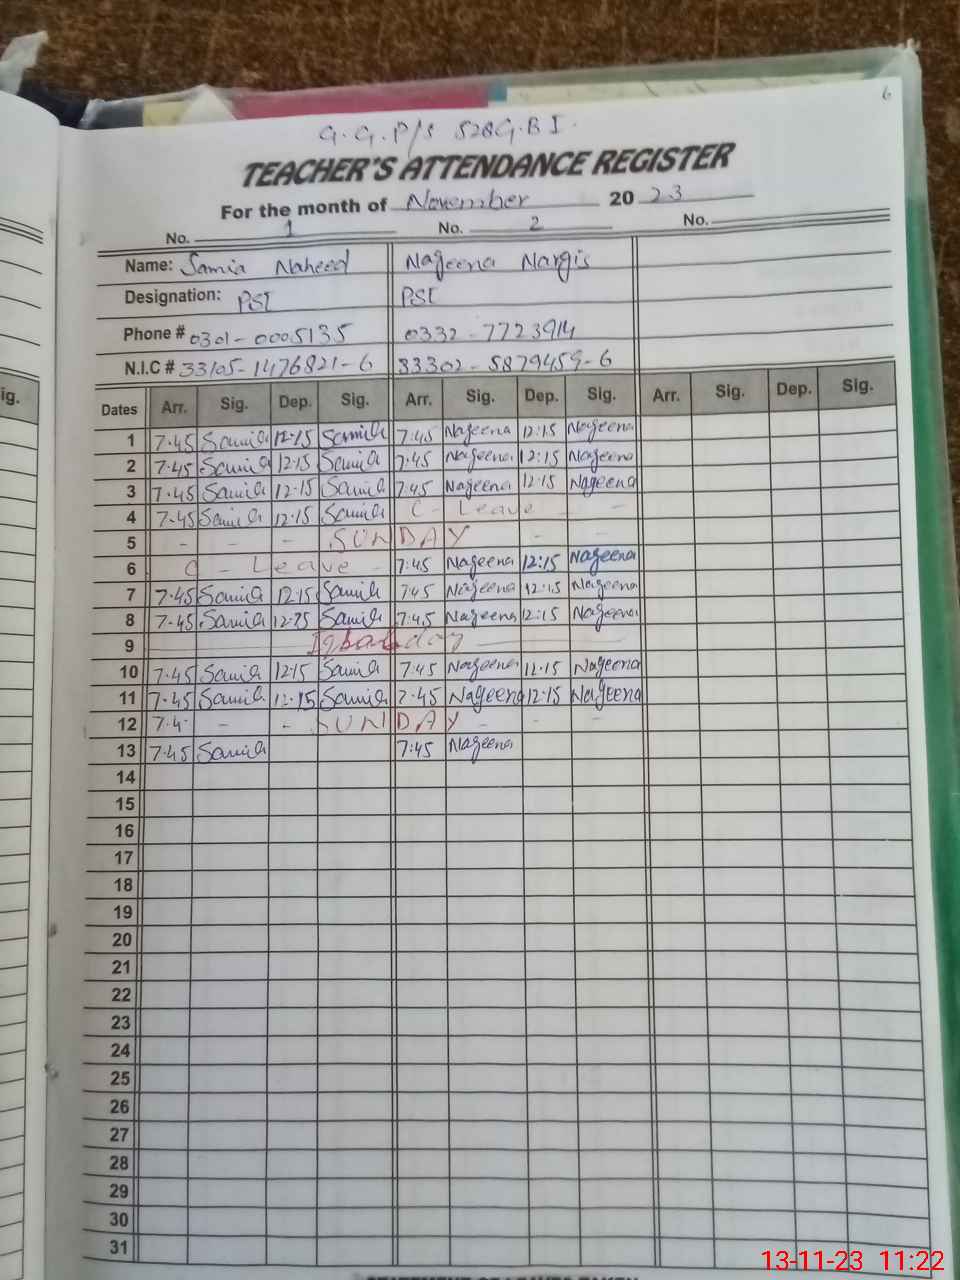 6
G.G.P/S 528 G.B I.
TEACHER'S ATTENDANCE REGISTER
For the month of November 20 23
No. 1 No. 2 No.
Name: Samia Naheed Nageena Nargis
Designation: PST PST
Phone # 0301-0005135 0332-7723914
N.I.C # 33105-1476821-6 33302-5879459-6
ig. Dates Arr. Sig. Dep. Sig. Arr. Sig. Dep. Sig. Arr. Sig. Dep. Sig.
1 7.45 Samia 12.15 Samia 7:45 Nageena 12:15 Nageena
2 7.45 Samia 12.15 Samia 7:45 Nageena 12:15 Nageena
3 7.45 Samia 12.15 Samia 7:45 Nageena 12:15 Nageena
4 7.45 Samia 12.15 Samia C - Leave - -
5 - - - SUNDAY - -
6 C - Leave - 7:45 Nageena 12:15 Nageena
7 7.45 Samia 12.15 Samia 7:45 Nageena 12:15 Nageena
8 7.45 Samia 12.15 Samia 7:45 Nageena 12:15 Nageena
9 Iqbal day
10 7.45 Samia 12.15 Samia 7:45 Nageena 12:15 Nageena
11 7.45 Samia 12.15 Samia 7:45 Nageena 12:15 Nageena
12 7.4 - - SUNDAY - - -
13 7.45 Samia 7:45 Nageena
14
15
16
17
18
19
20
21
22
23
24
25
26
27
28
29
30
31
13-11-23 11:22